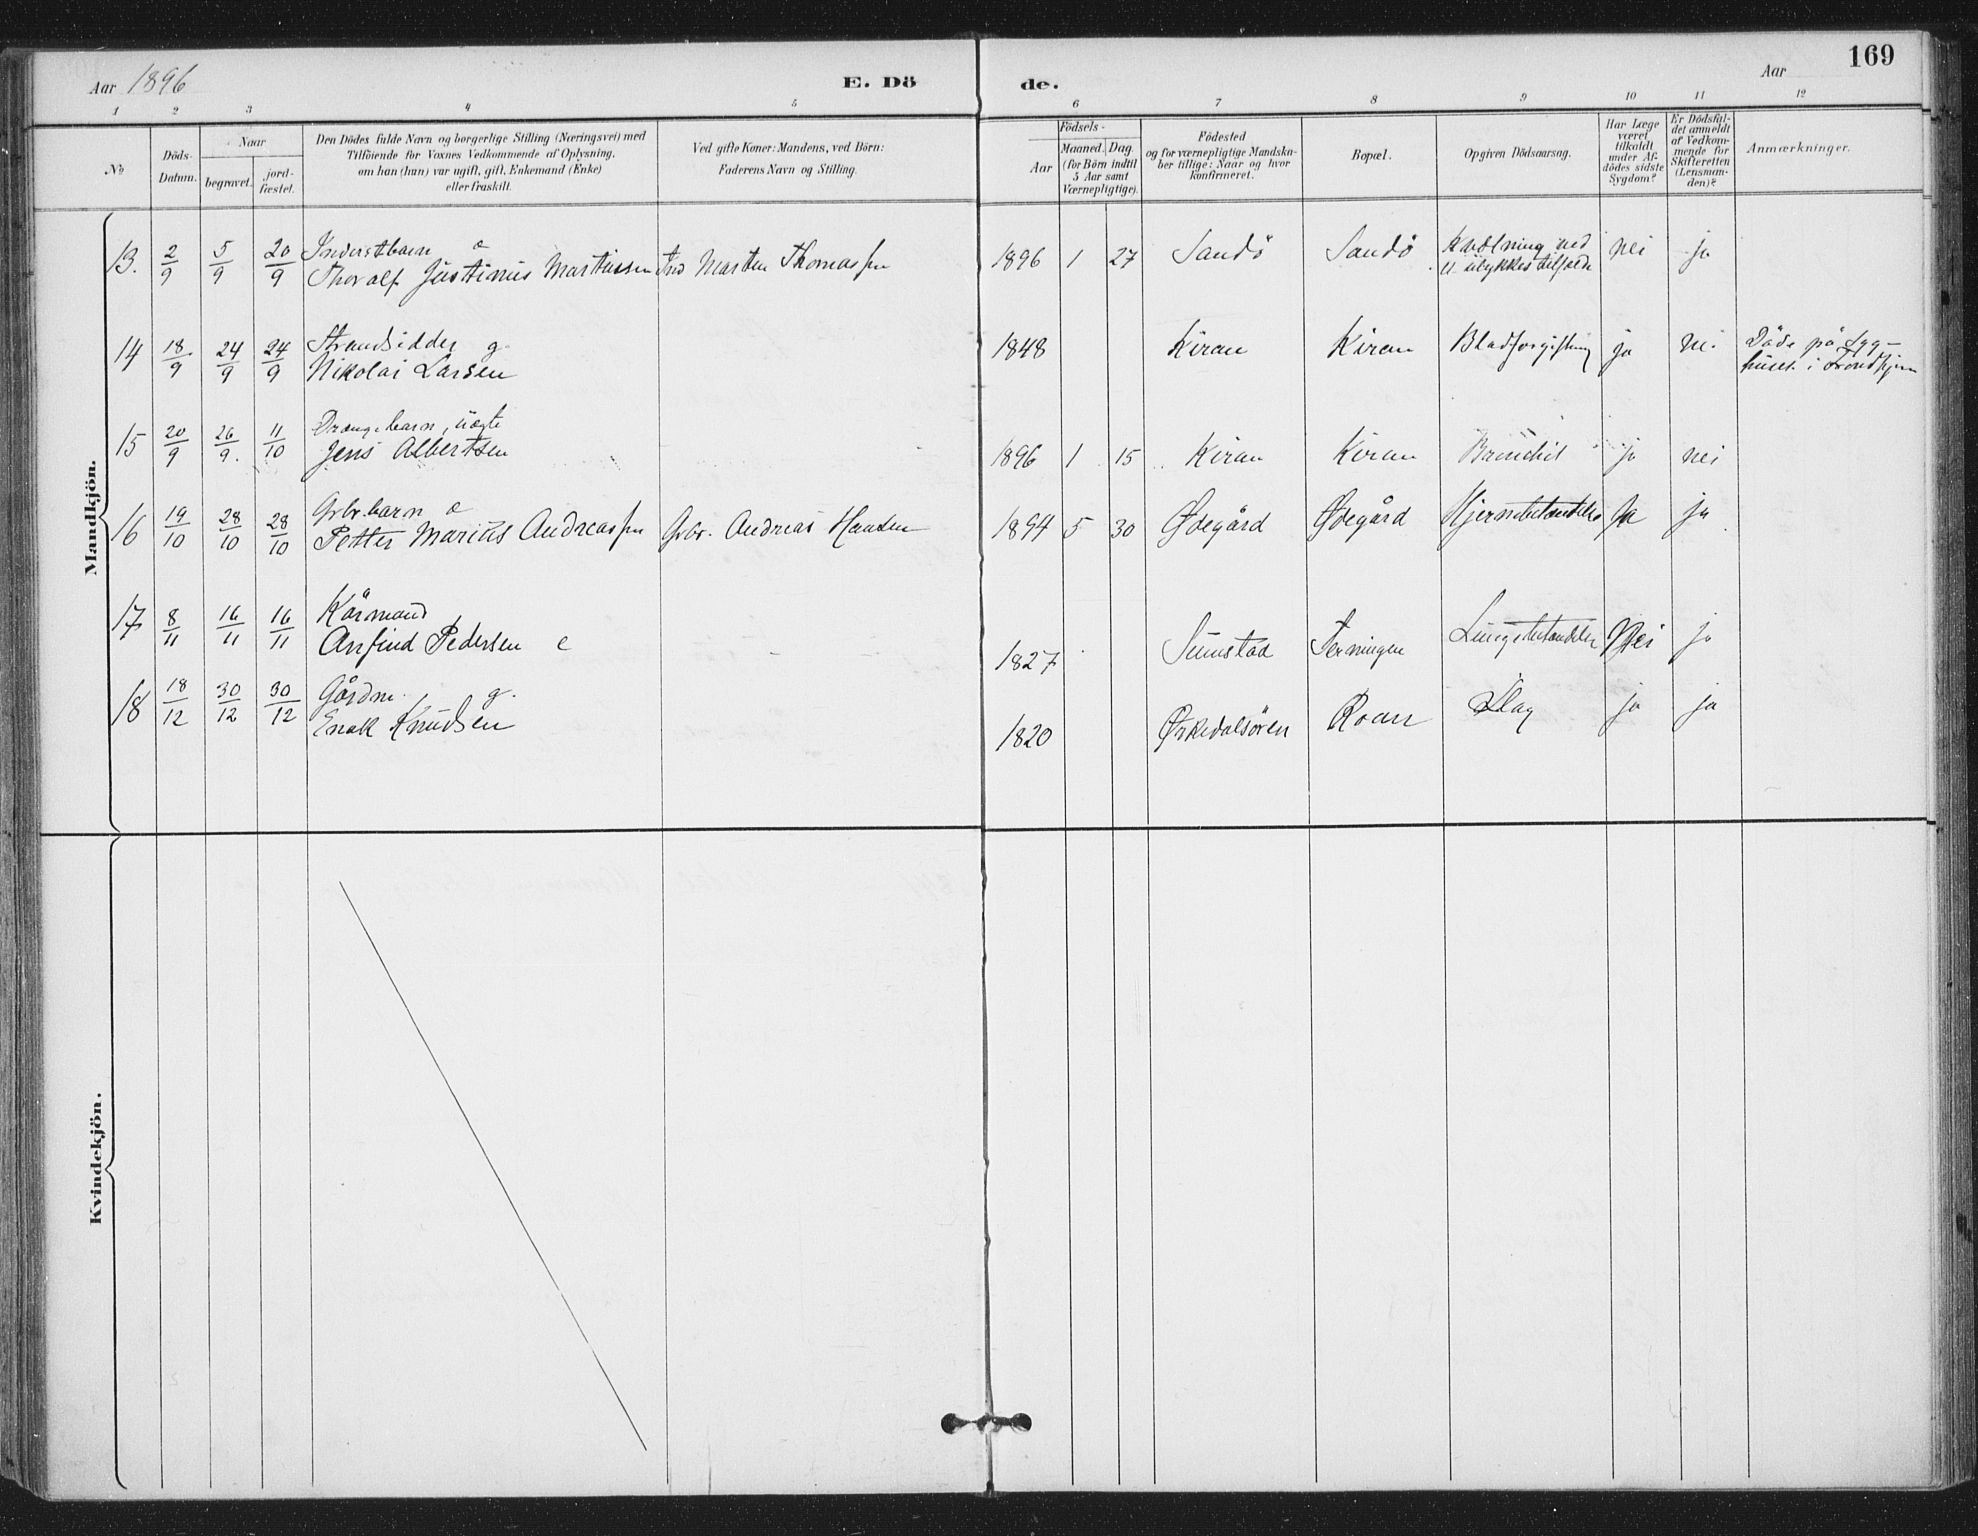 169
Aar 1896
E. Dö
de.
Aar
1 2 3 4 5 6 7 8 9 10 11 12
No
Döds-
Datum.
Naar
begravet.
jord-
fæstet.
Den Dödes fulde Navn og borgerlige Stilling (Næringsvei) med
Tilföiende for Voxnes Vedkommende af Oplysning.
om han (hun) var ugift, gift, Enkemand (Enke)
eller fraskilt.
Ved gifte Koner: Mandens, ved Börn:
Faderens Navn og Stilling.
Födsels-
Aar
Maaned.
Dag.
(for Börn indtil
5 Aar samt
Værnepligtige).
Födested
og for værnepligtige Mandska-
ber tillige: Naar og hvor
konfirmeret.
Bopæl.
Opgiven Dödsaarsag.
Har Læge
været
tilkaldt
under Af-
dödes sidste
Sygdom?
Er Dödsfal-
det anmeldt
af Vedkom-
mende for
Skifteretten
(Lensman-
den)?
Anmærkninger.
Mandkjön.
13. 2/9 5/9 20/9 Inderstbarn
Thoralf Justinus Martinsen Ind Marten Thomassen 1896 1 27 Sandö Sandö Kvælning ved
ulykkestilfælde nei ja
14 18/9 24/9 24/9 Strandsidder g.
Nikolai Larsen 1848 Kiran Kiran Blodforgiftning ja nei Döde på Syg-
huset i Trondhjem
15 20/9 26/9. 11/10 Drengebarn, uægte
Jens Albertsen 1896 1 15 Kiran Kiran ja nei
16 19/10 28/10 28/10 Grbr.barn
Petter Marius Andreassen Grbr. Andreas Hansen 1894 5 30 Ødegård Ødegård Hjernebetændelse Ja ja
17 8/11 16/11 16/11 Kårmand
Anfind Pedersen e 1827 Sumstad Terningen Lungebetændelse Nei ja
18 18/12 30/12 30/12 Gårdm. g.
Enok Knudsen 1820 Ørkedalsören Roan Slag ja ja
Kvindekjön.